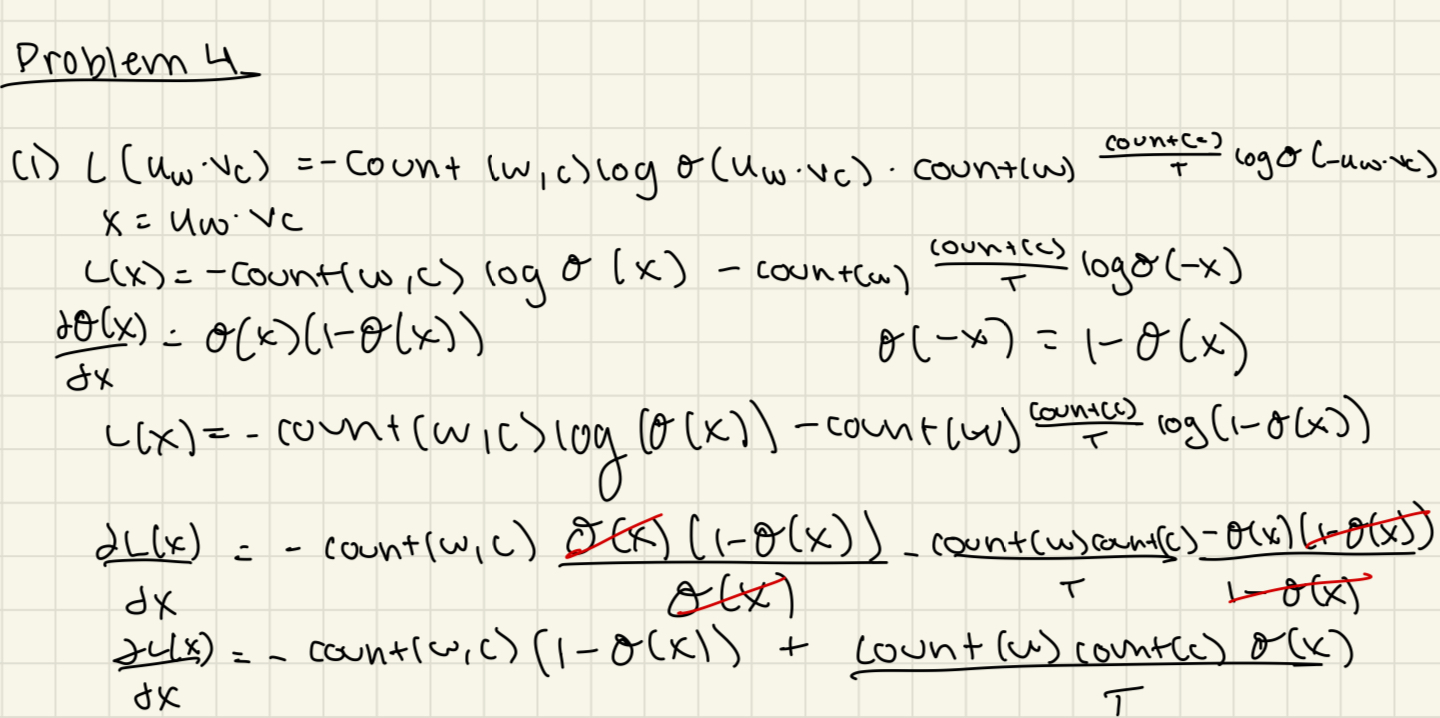 Problem 4
(1) L(u_w·v_c) = -count(w,c) log σ(u_w·v_c) · count(w) count(c)/T log σ(-u_w·v_c)
x = u_w·v_c
L(x) = -count(w,c) log σ(x) - count(w) count(c)/T log σ(-x)
∂σ(x)/∂x = σ(x)(1-σ(x)) σ(-x) = 1-σ(x)
L(x) = -count(w,c) log(σ(x)) - count(w) count(c)/T log(1-σ(x))
∂L(x)/∂x = -count(w,c) σ(x)(1-σ(x))/σ(x) - count(w)count(c)/T -σ(x)(1-σ(x))/1-σ(x)
∂L(x)/∂x = -count(w,c)(1-σ(x)) + count(w)count(c) σ(x)/T